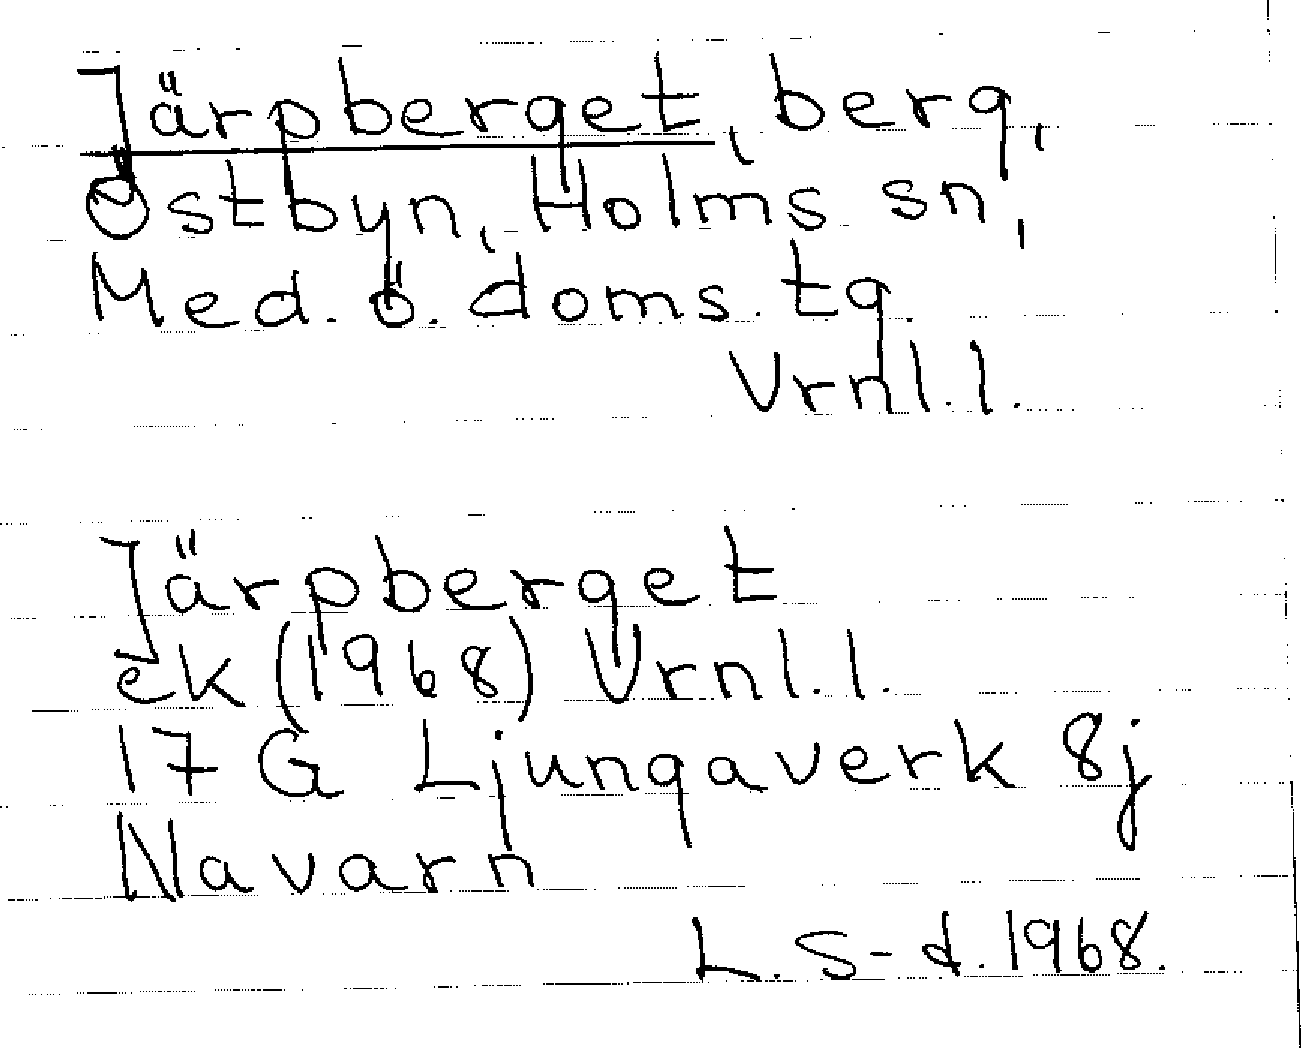 Järpberget, berg,
Östbyn, Holms sn,
Med. ö. doms. tg.
Vrnl. l.
Järpberget
ek (1968) Vrnl. l.
17 G Ljungaverk 8j
Navarn
L. S-d. 1968.